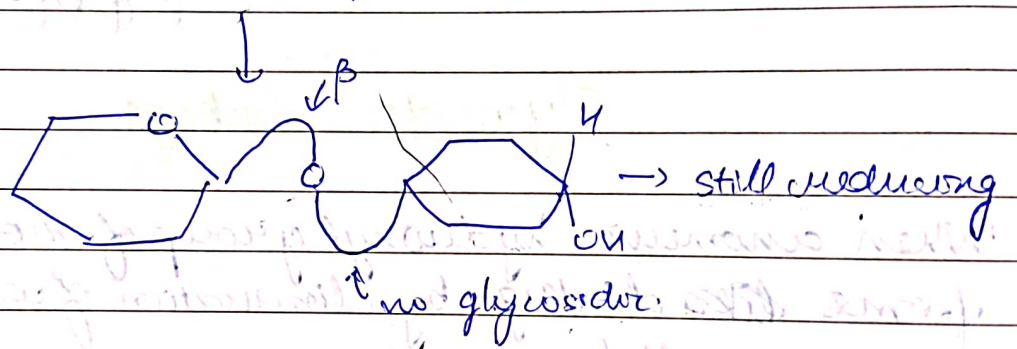 β
O
H
O
→ still reducing
OH
no glycosidic.